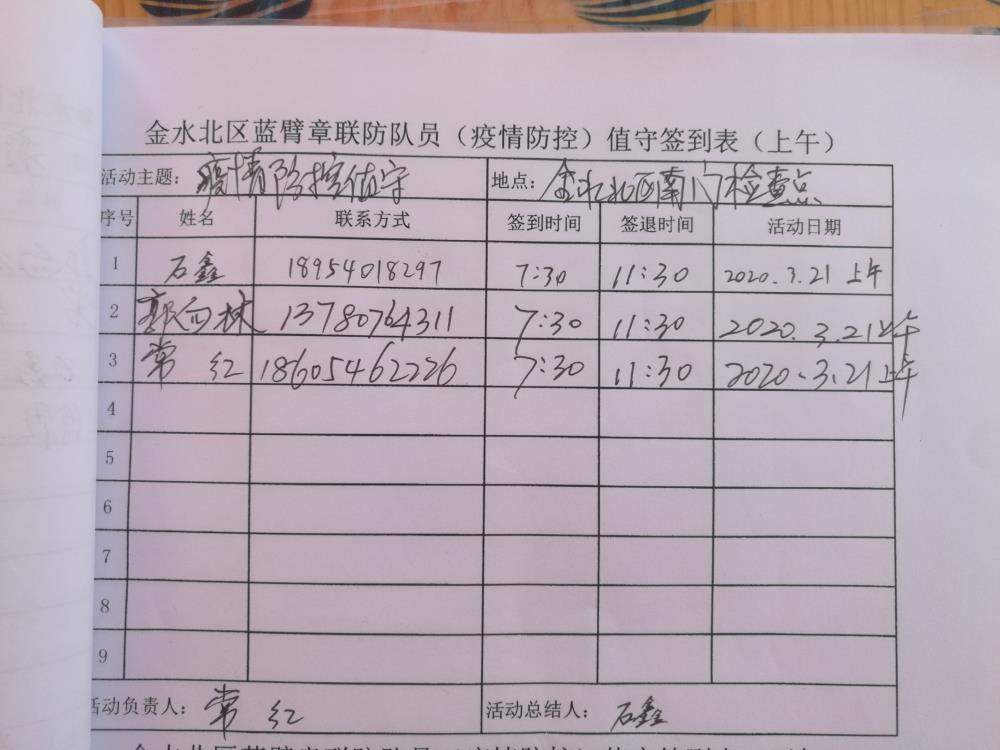 金水北区蓝臂章联防队员（疫情防控）值守签到表（上午）
活动主题：疫情防控值守 地点：金水北区南门检查点
序号 姓名 联系方式 签到时间 签退时间 活动日期
1 石鑫 18954018297 7:30 11:30 2020.3.21 上午
2 郭向林 13780764311 7:30 11:30 2020.3.21上午
3 常红 18605462226 7:30 11:30 2020.3.21上午
4
5
6
7
8
9
活动负责人：常红 活动总结人：石鑫